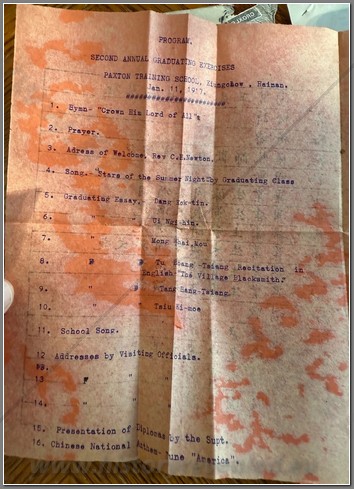 PROGRAM.
SECOND ANNUAL GRADUATING EXERCISES
PAXTON TRAINING SCHOOL, Kiungchow, Hainan.
Jan. 11, 1917.
##########################
1. Hymn- "Crown Him Lord of All"
2. Prayer.
3. Adress of Welcome, Rev C.H.Newton.
4. Song. "Stars of the Summer Night"by Graduating Class
5. Graduating Essay. Dang Hok-tin.
6. " " Ui Ngi-hin.
7. " " Mong Chai,Mou
8. " " Tu Siang-Tsiang Recitation in
English "The Village Blacksmith."
9. " " Tang Sang-Tsiang.
10. " " Tsiu Ki-moe
11. School Song.
12 Addresses by Visiting Officials.
13 " " "
14. " " "
15. Presentation of Diplomas by the Supt.
16. Chinese National Anthem-Tune "America".